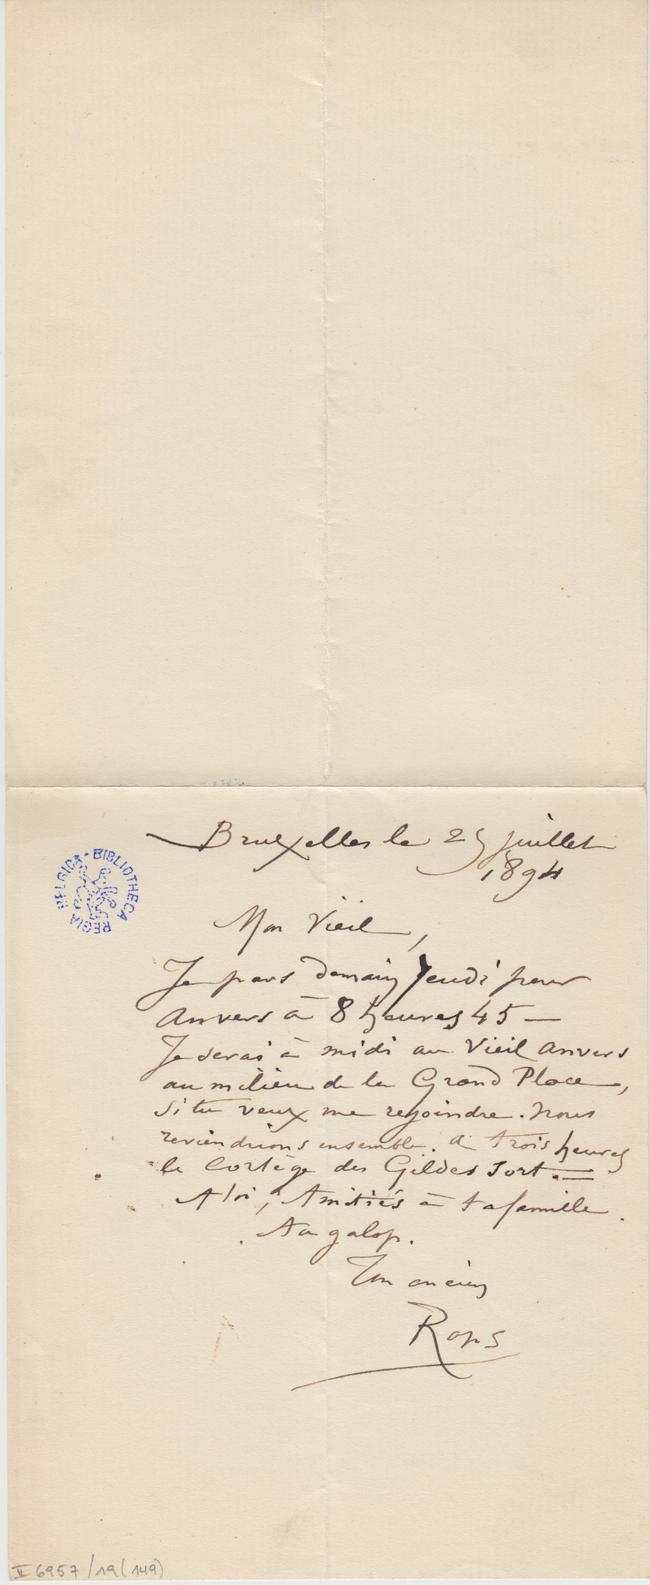 Bruxelles le 25 juillet
1894
Mon Vieil,
Je pars demain jeudi pour
Anvers à 8 heures 45 —
Je serai à midi au Vieil Anvers
au milieu de la Grand Place,
si tu veux me rejoindre. Nous
reviendrions ensemble. à trois heures
le Cortège des Gildes sort. —
A toi, Amitiés à ta famille.
Au galop.
Ton ancien
Rops
BIBLIOTHECA REGIA BELGICA
II 6957/19(149)